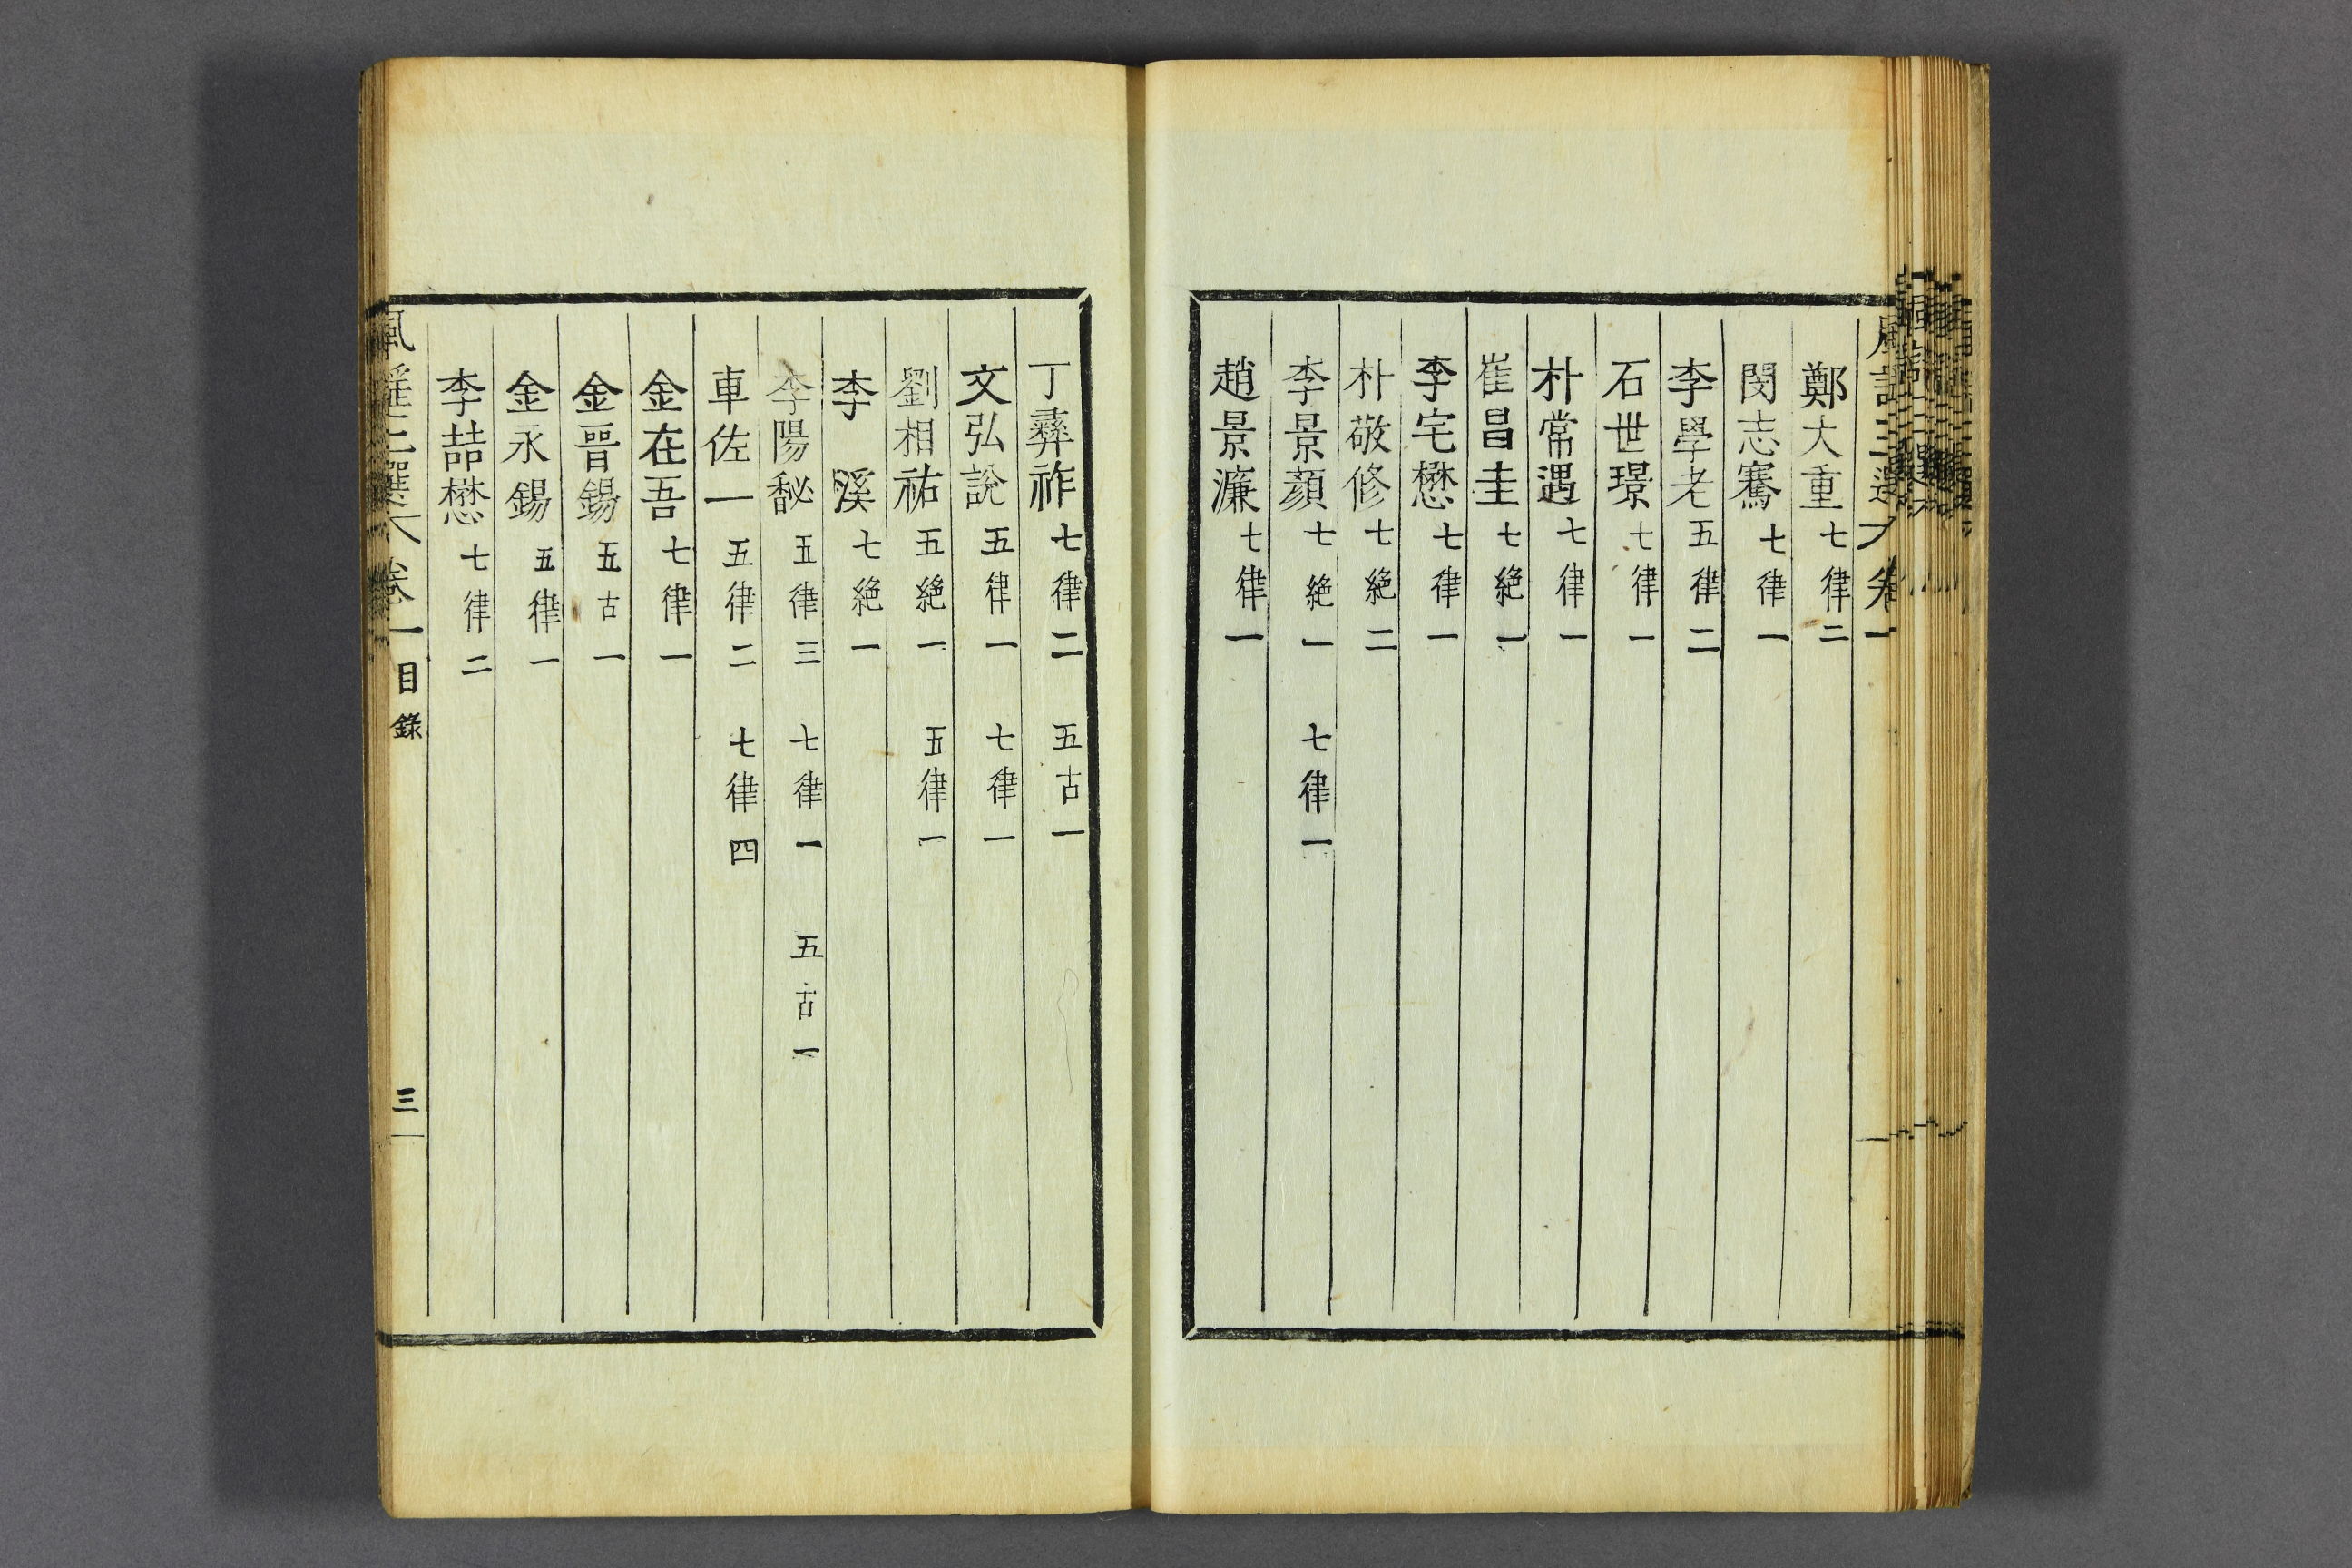 鄭大重 七律二
閔志騫 七律一
李學老 五律二
石世璟 七律一
朴常遇 七律一
崔昌圭 七絶一
李宅懋 七律一
朴敬修 七絶二
李景顔 七絶一 七律一
趙景濂 七律一
丁彛祚 七律二 五古一
文弘說 五律一 七律一
劉相祐 五絶一 五律一
李溪 七絶一
李陽馝 五律三 七律一 五古一
車佐一 五律二 七律四
金在吾 七律一
金晉錫 五古一
金永錫 五律一
李喆懋 七律二
風謠三選 卷一 目錄 三